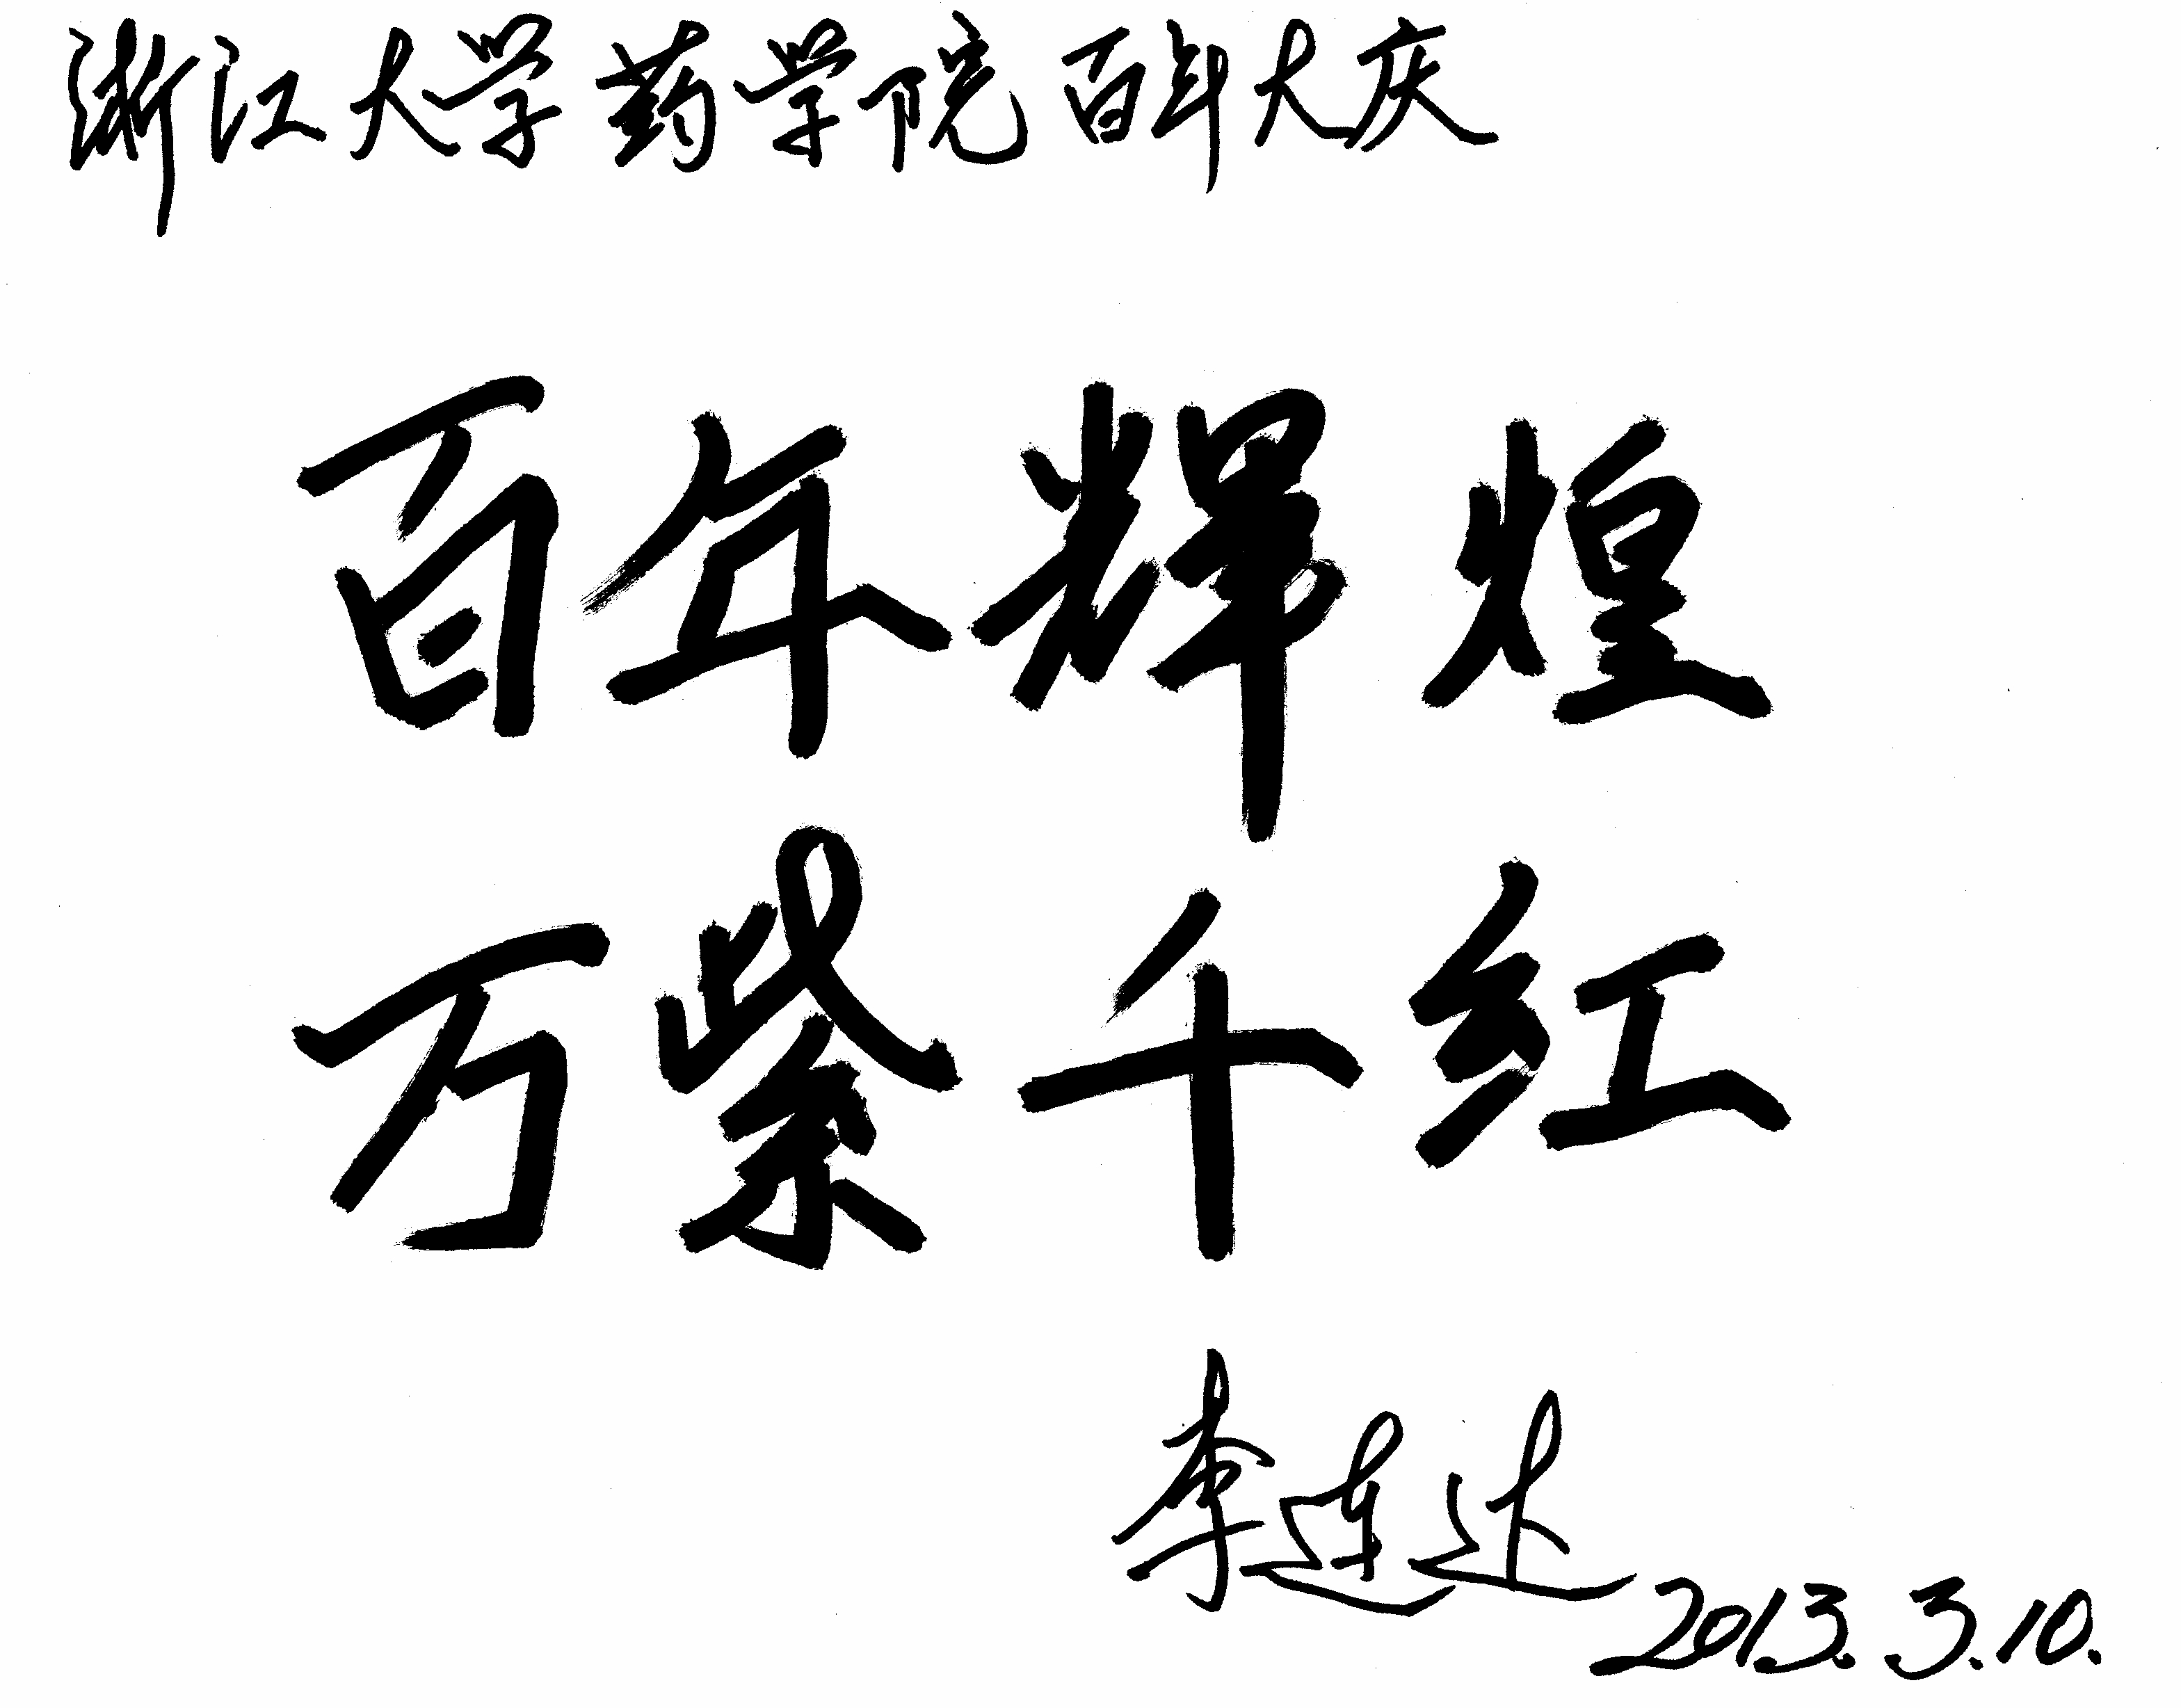 浙江大学药学院百年大庆
百年辉煌
万紫千红
李连达
2013.3.10.